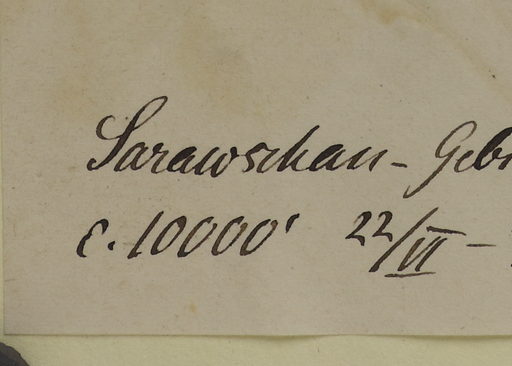 Sarawschan-Geb
c. 10000' 22/VI -